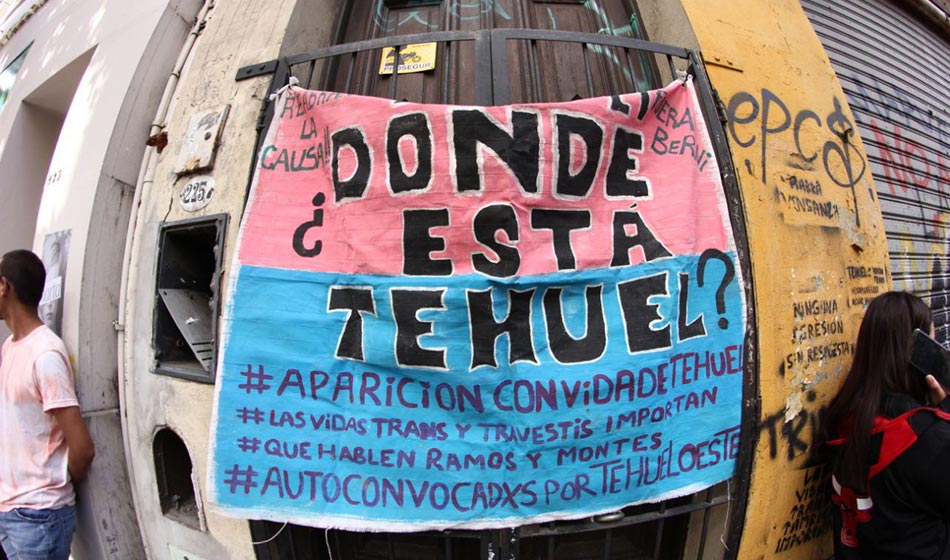 PROSEGUR
REABRAN
LA
CAUSA!!
FUERA
BERNI
DONDE
¿ ESTÁ
TEHUEL?
#APARICION CON VIDA DE TEHUEL
#LAS VIDAS TRANS Y TRAVESTIS IMPORTAN
#QUE HABLEN RAMOS Y MONTES
#AUTOCONVOCADXS POR TEHUEL OESTE
225
epc$
NINGUNA
AGRESIÓN
SIN RESPUESTA
TEHUEL
LAS
VIDAS
TRANS
IMPORTAN